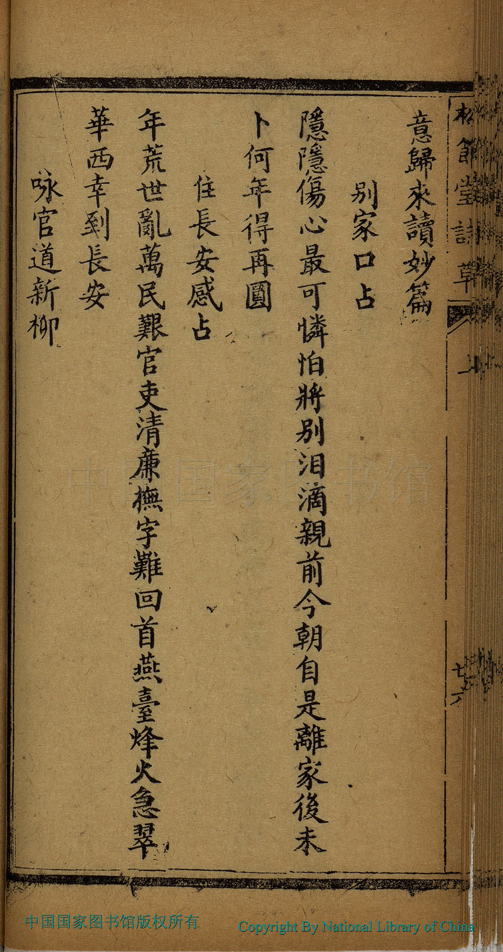 松節堂詩草
上
意歸來讀妙篇
別家口占
隱隱傷心最可憐怕將別泪滴親前今朝自是離家後未
卜何年得再圓
住長安感占
年荒世亂萬民艱官吏清廉撫字難回首燕臺烽火急翠
華西幸到長安
咏官道新柳
中国国家图书馆
中国国家图书馆版权所有
Copyright By National Library of China